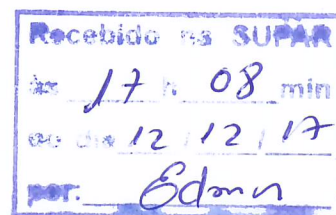 Recebido na SUPAR
às 17 h 08 min
do dia 12 / 12 / 17
por: